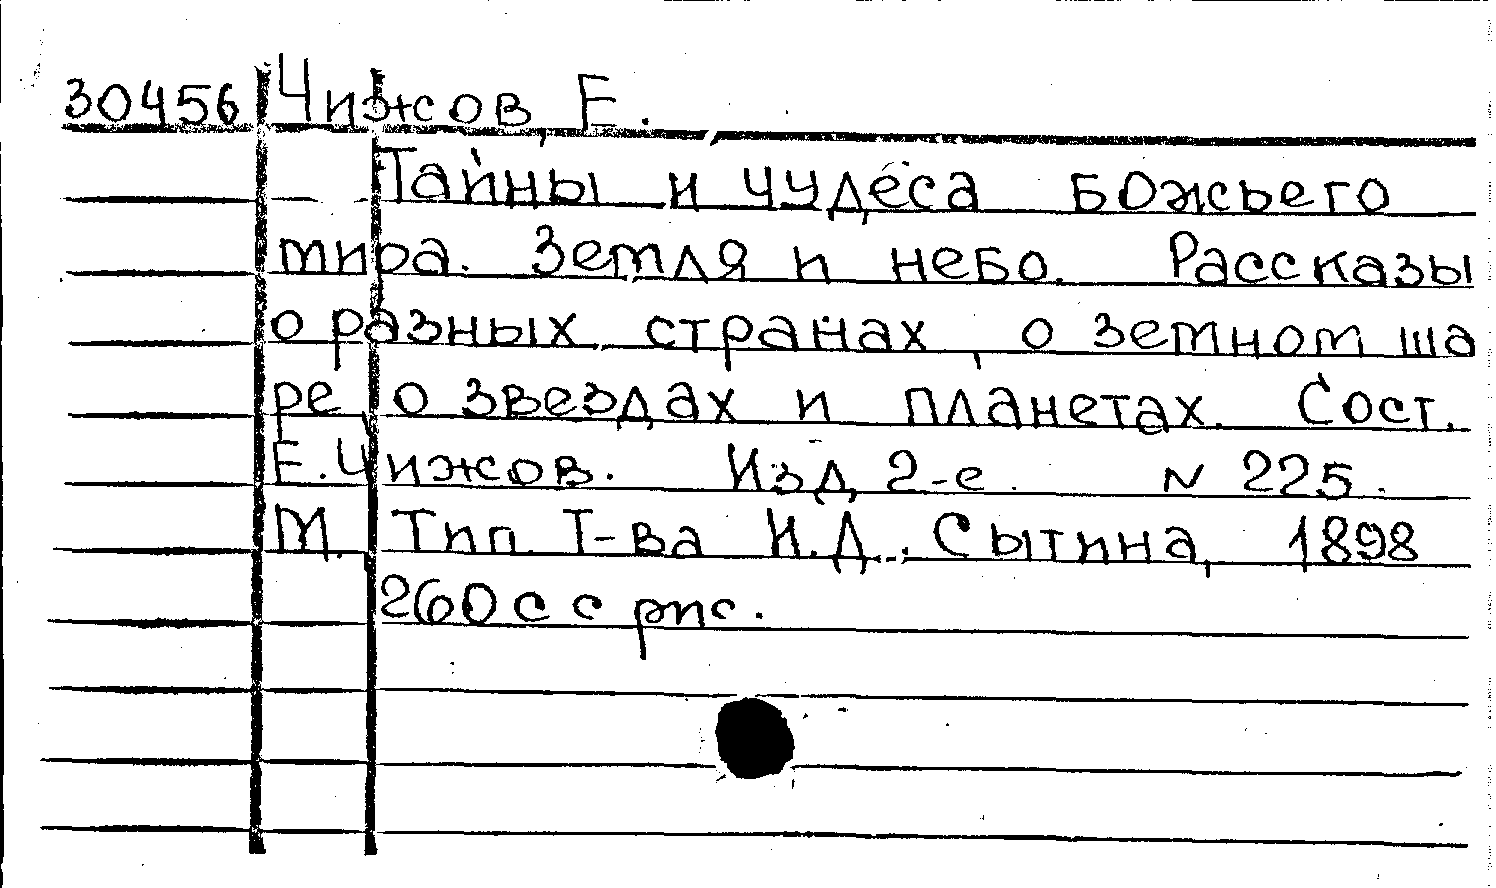 30456 Чижов, Е.
Тайны и чудеса божьего
мира. Земля и небо. Рассказы
о разных странах, о земном ша
ре, о звездах и планетах. Сост.
Е. Чижов. Изд. 2-е. N 225.
М. Тип. Т-ва И.Д. Сытина, 1898
260 с с рис.